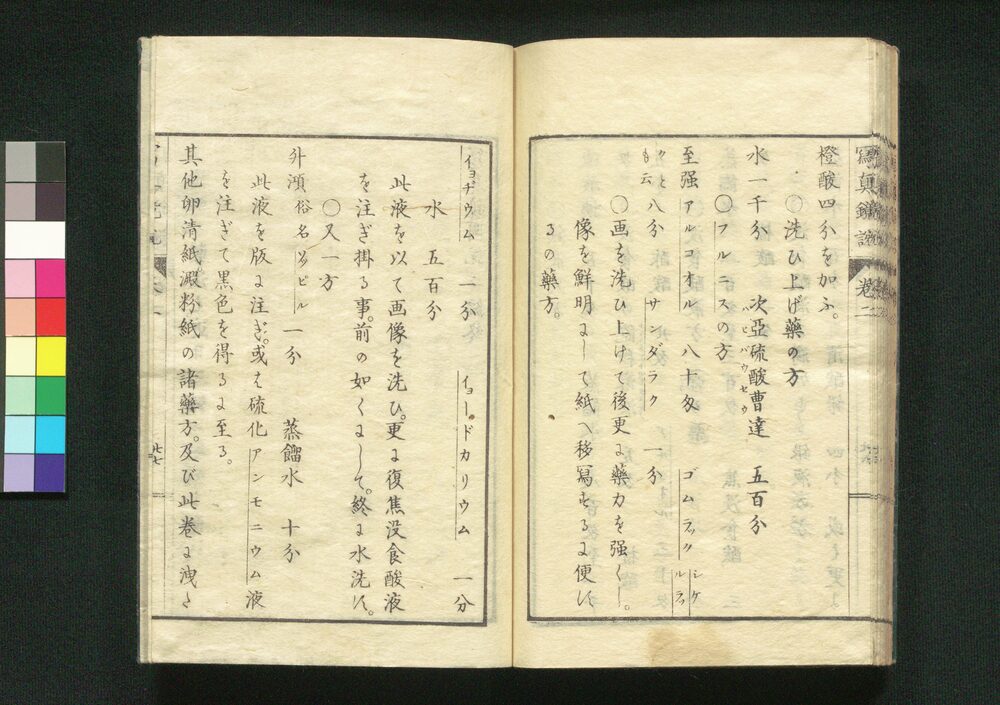 橙酸四分を加ふ。
〇洗ひ上げ藥の方
水一千分 次亜硫酸曹達 五百分
〇フルニスの方
至强アルコオル 八十匁 ゴムラック
八分 サンダラク 一分
〇画を洗ひ上けて後更に藥力を强くし。
像を鮮明にして紙へ移寫するに便す
るの藥方。
イヨヂウム 一分 イヨードカリウム 一分
水 五百分
此液を以て画像を洗ひ。更に復焦没食酸液
を注ぎ掛る事。前の如くにして。終に水洗す。
〇又一方
一分 蒸餾水 十分
此液を版に注ぎ。或は硫化アンモニウム液
を注ぎて黒色を得るに至る。
其他卵清紙。澱粉紙の諸藥方。及び此卷に洩た